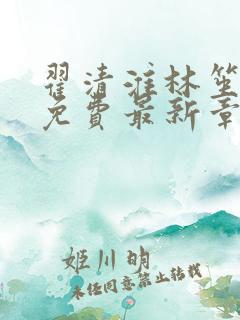 翟清淮林笙
免費最新章
姬川明
未经同意禁止转载